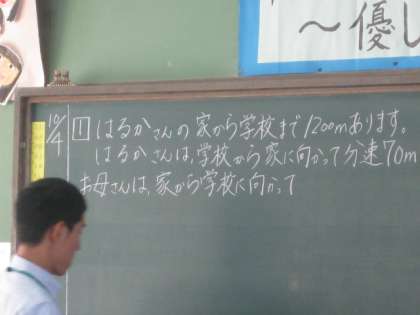 ～優し
10/4
1 はるかさんの家から学校まで1200mあります。
はるかさんは、学校から家に向かって分速70m
お母さんは、家から学校に向かって